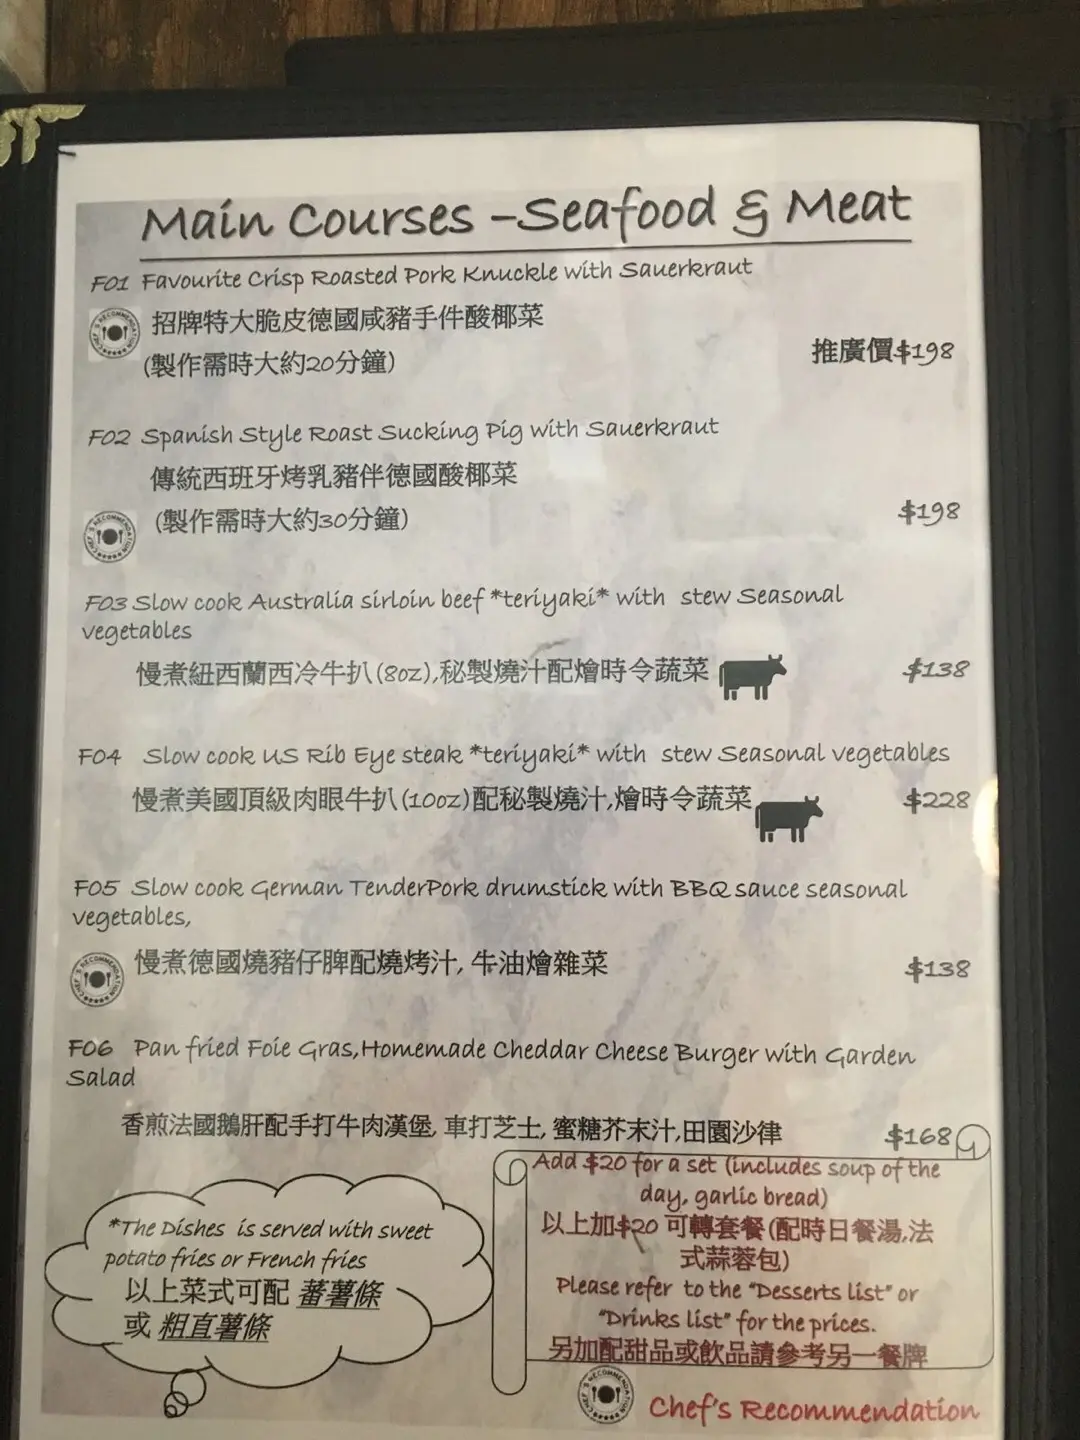 Main Courses –Seafood & Meat
F01 Favourite Crisp Roasted Pork Knuckle with Sauerkraut
招牌特大脆皮德國咸豬手件酸椰菜
(製作需時大約20分鐘)
推廣價$198
F02 Spanish Style Roast Sucking Pig with Sauerkraut
傳統西班牙烤乳豬伴德國酸椰菜
(製作需時大約30分鐘)
$198
F03 Slow cook Australia sirloin beef *teriyaki* with stew Seasonal
vegetables
慢煮紐西蘭西冷牛扒(8oz),秘製燒汁配燴時令蔬菜
$138
F04 Slow cook US Rib Eye steak *teriyaki* with stew Seasonal vegetables
慢煮美國頂級肉眼牛扒(10oz)配秘製燒汁,燴時令蔬菜
$228
F05 Slow cook German TenderPork drumstick with BBQ sauce seasonal
vegetables,
慢煮德國燒豬仔脾配燒烤汁, 牛油燴雜菜
$138
F06 Pan fried Foie Gras,Homemade Cheddar Cheese Burger with Garden
Salad
香煎法國鵝肝配手打牛肉漢堡, 車打芝士, 蜜糖芥末汁,田園沙律
$168
*The Dishes is served with sweet
potato fries or French fries
以上菜式可配 蕃薯條
或 粗直薯條
Add $20 for a set (includes soup of the
day, garlic bread)
以上加$20 可轉套餐(配時日餐湯,法
式蒜蓉包)
Please refer to the "Desserts list" or
"Drinks list" for the prices.
另加配甜品或飲品請參考另一餐牌
Chef's Recommendation